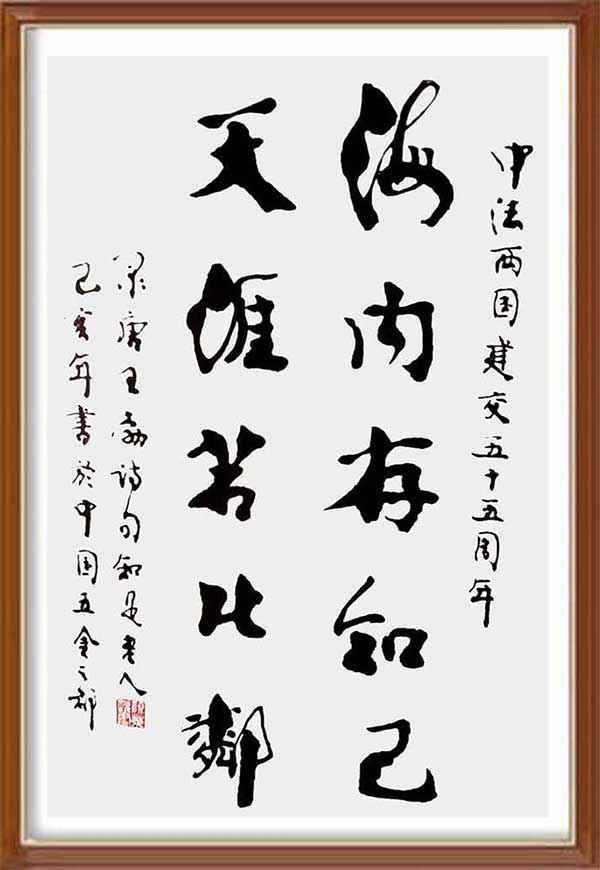 中法两国建交五十五周年
海内存知己
天涯若比鄰
录唐王勃诗句知足老人
己亥年書於中国五金之都